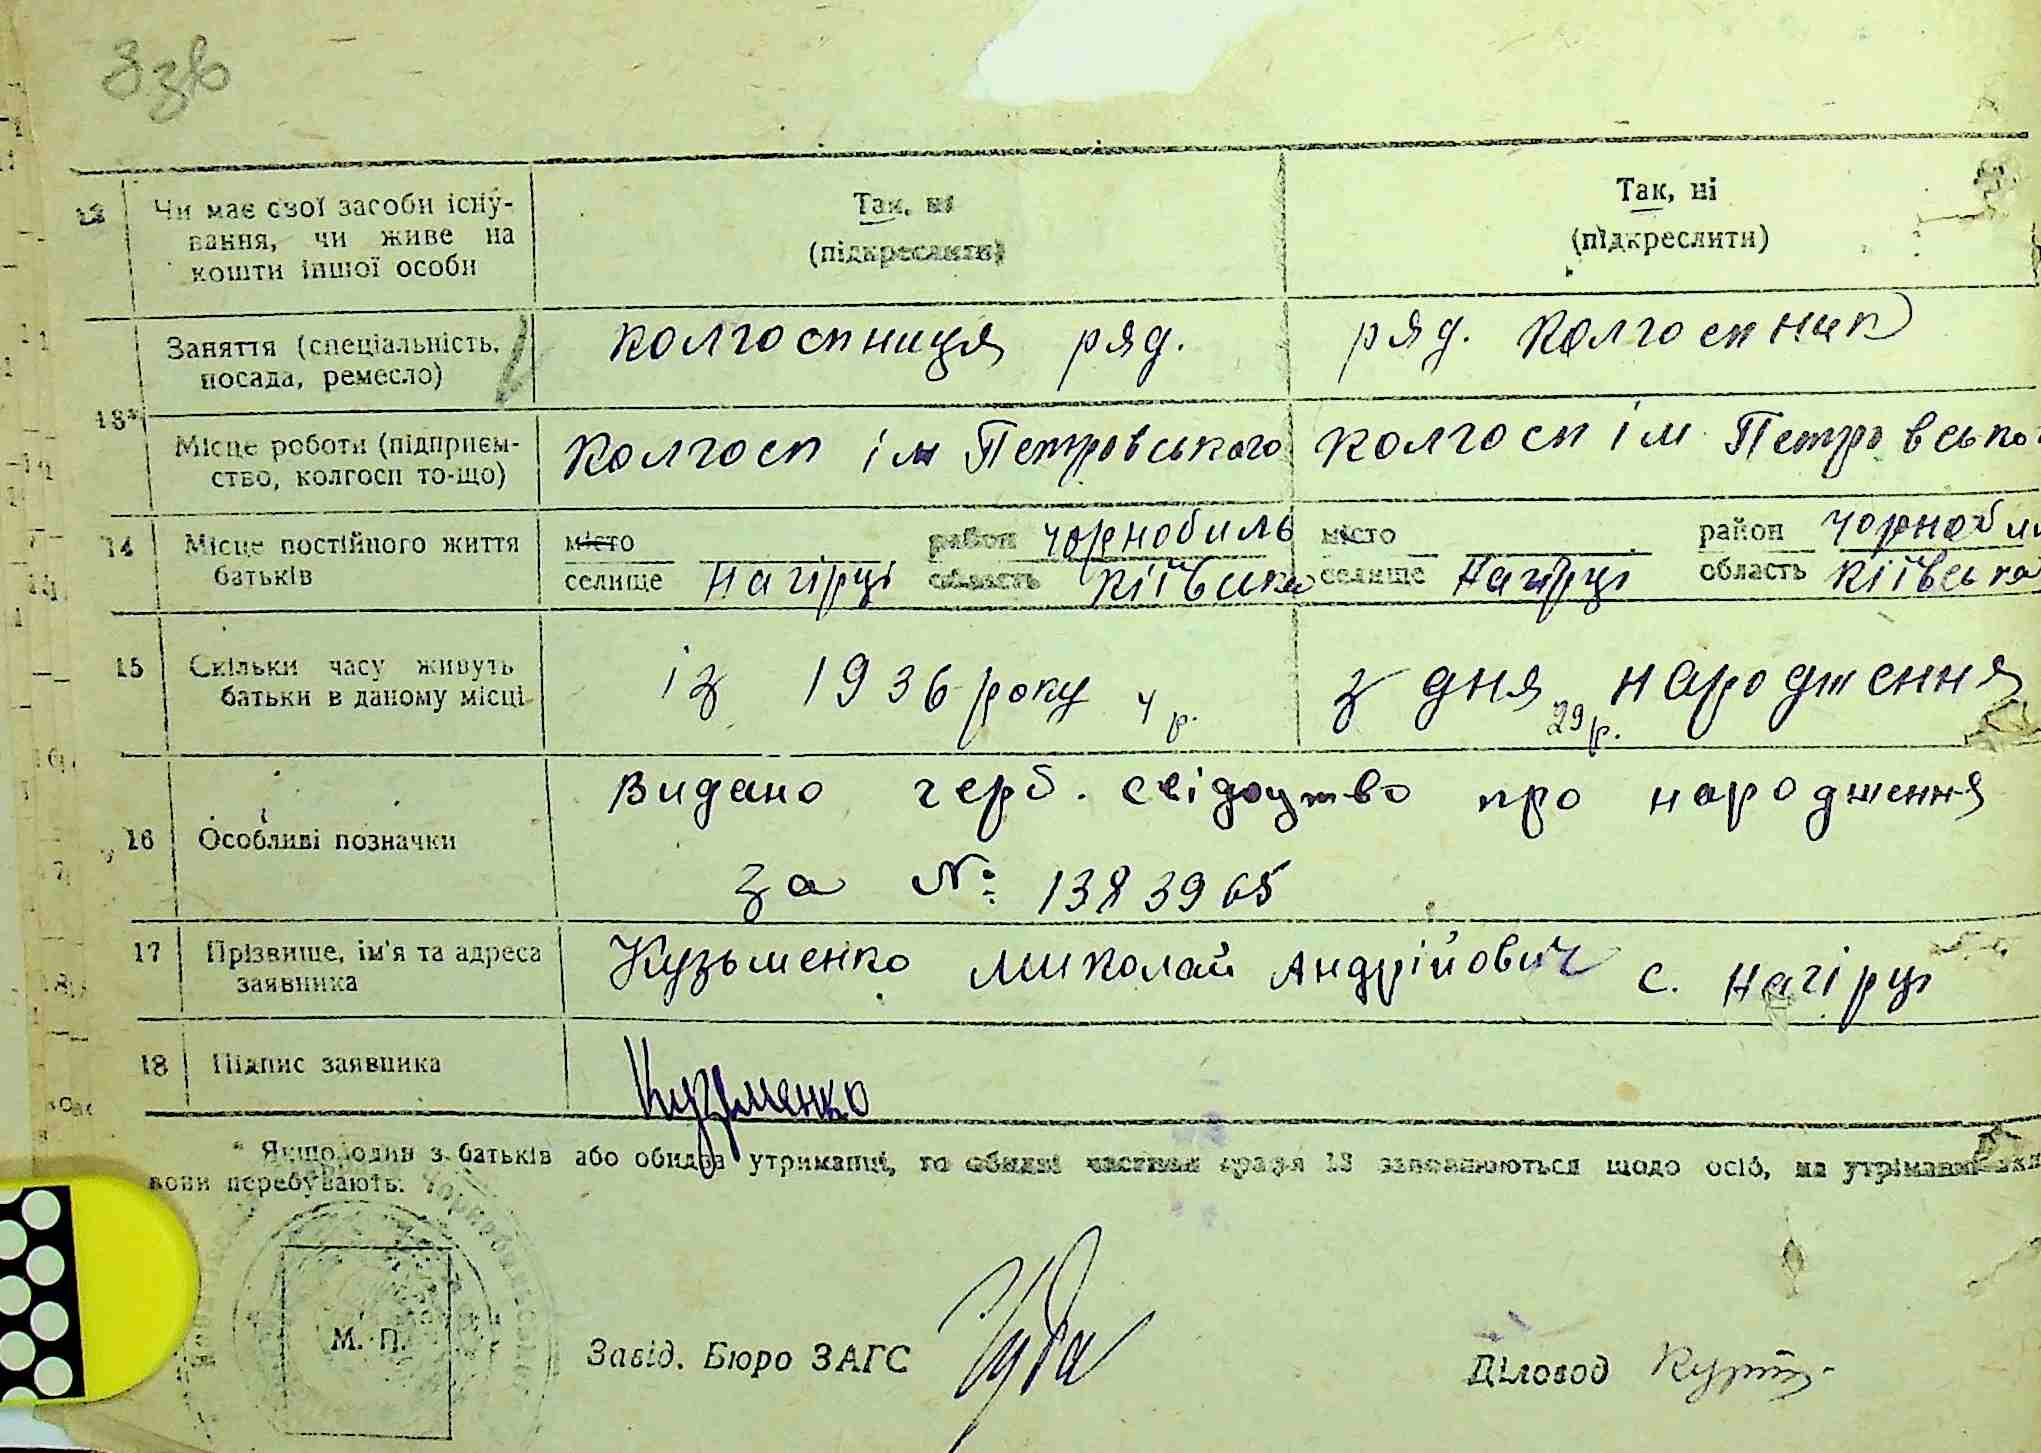 12 Чи має свої засоби існу-
вання, чи живе на
кошти іншої особи
Так, ні
(підкреслити)
Так, ні
(підкреслити)
13*
Заняття (спеціальність,
посада, ремесло)
колгоспниця ряд.
ряд. колгоспник
Місце роботи (підприєм-
ство, колгосп то-що)
Колгосп ім Петровського
колгосп ім Петровсько
14 Місце постійного життя
батьків
місто район Чорнобиль
селище Нагірці область Кіївська
місто район Чорноби
селище Нагірці область Кіївська
15 Скільки часу живуть
батьки в даному місці
із 1936 року 4 р.
з дня народження
29 р.
16 Особливі позначки
Видано герб. свідоцтво про народження
за № 1383965
17 Прізвище, ім'я та адреса
заявника
Кузьменко Миколай Андрійович с. Нагірці
18 Підпис заявника
Кузьменко
* Якщо один з батьків або обидва утриманці, то обидві частини графи 13 заповнюються щодо осіб, на утриманні
вони перебувають.
М. П.
Завід. Бюро ЗАГС
Діловод